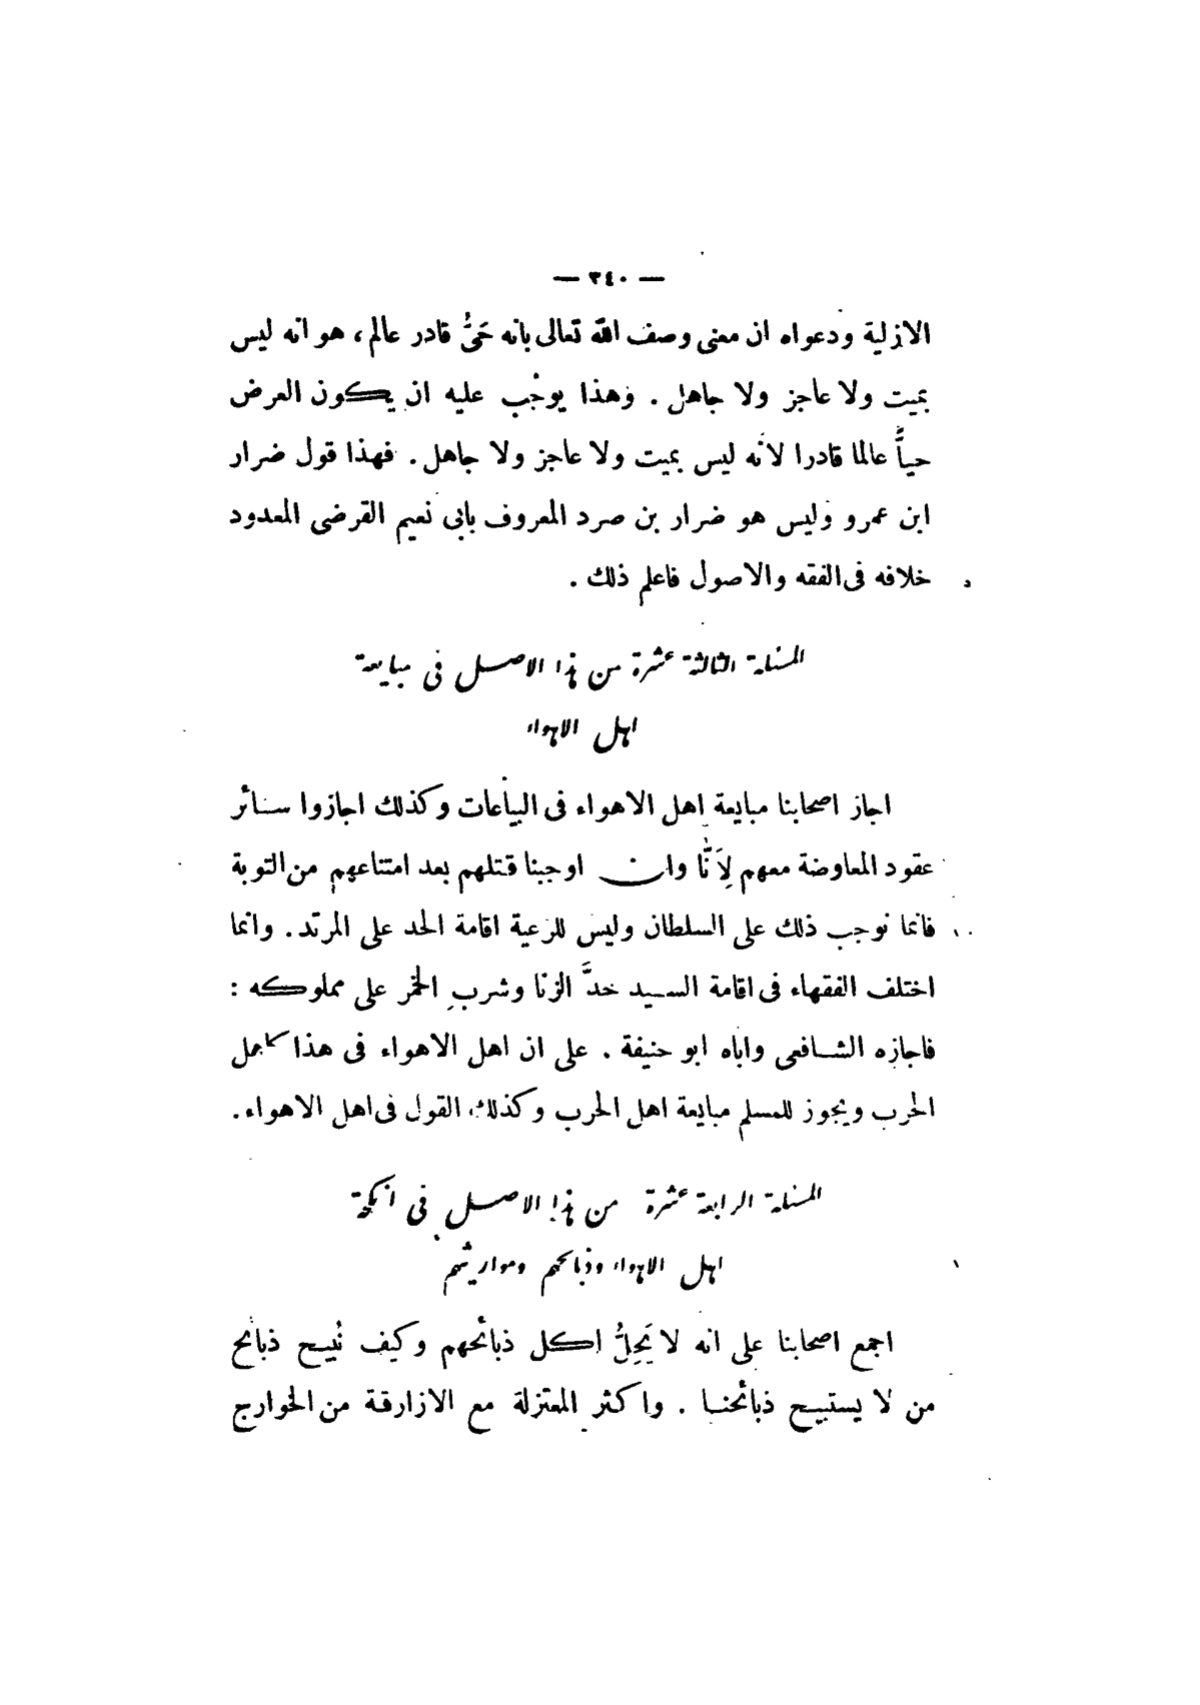 — ٣٤٠ —
الازلية ودعواه ان معنى وصف الله تعالى بانه حَىُّ قادر عالم، هو انه ليس
بميت ولا عاجز ولا جاهل . وهذا يوجب عليه ان يكون العرض
حياًّ عالما قادرا لانه ليس بميت ولا عاجز ولا جاهل . فهذا قول ضرار
ابن عمرو وليس هو ضرار بن صرد المعروف بابى نعيم القرضى المعدود
خلافه فى الفقه والاصول فاعلم ذلك .
المسئلة الثالثة عشرة من هذا الاصل فى مبايعة
اهل الاهواء
اجاز اصحابنا مبايعة اهل الاهواء فى البياعات وكذلك اجازوا سائر
عقود المعاوضة معهم لِاَنَّا وان اوجبنا قتلهم بعد امتناعهم من التوبة
فانما نوجب ذلك على السلطان وليس للرعية اقامة الحد على المرتد . وانما
اختلف الفقهاء فى اقامة السيد حدَّ الزنا وشربِ الخمر على مملوكه :
فاجازه الشافعى واباه ابو حنيفة . على ان اهل الاهواء فى هذا كاهل
الحرب ويجوز للمسلم مبايعة اهل الحرب وكذلك القول فى اهل الاهواء .
المسئلة الرابعة عشرة من هذا الاصل فى انكحة
اهل الاهواء وذبائحهم ومواريثهم
اجمع اصحابنا على انه لا يَحِلُّ اكل ذبائحهم وكيف نُبيح ذبائح
من لا يستبيح ذبائحنا . واكثر المعتزلة مع الازارقة من الخوارج